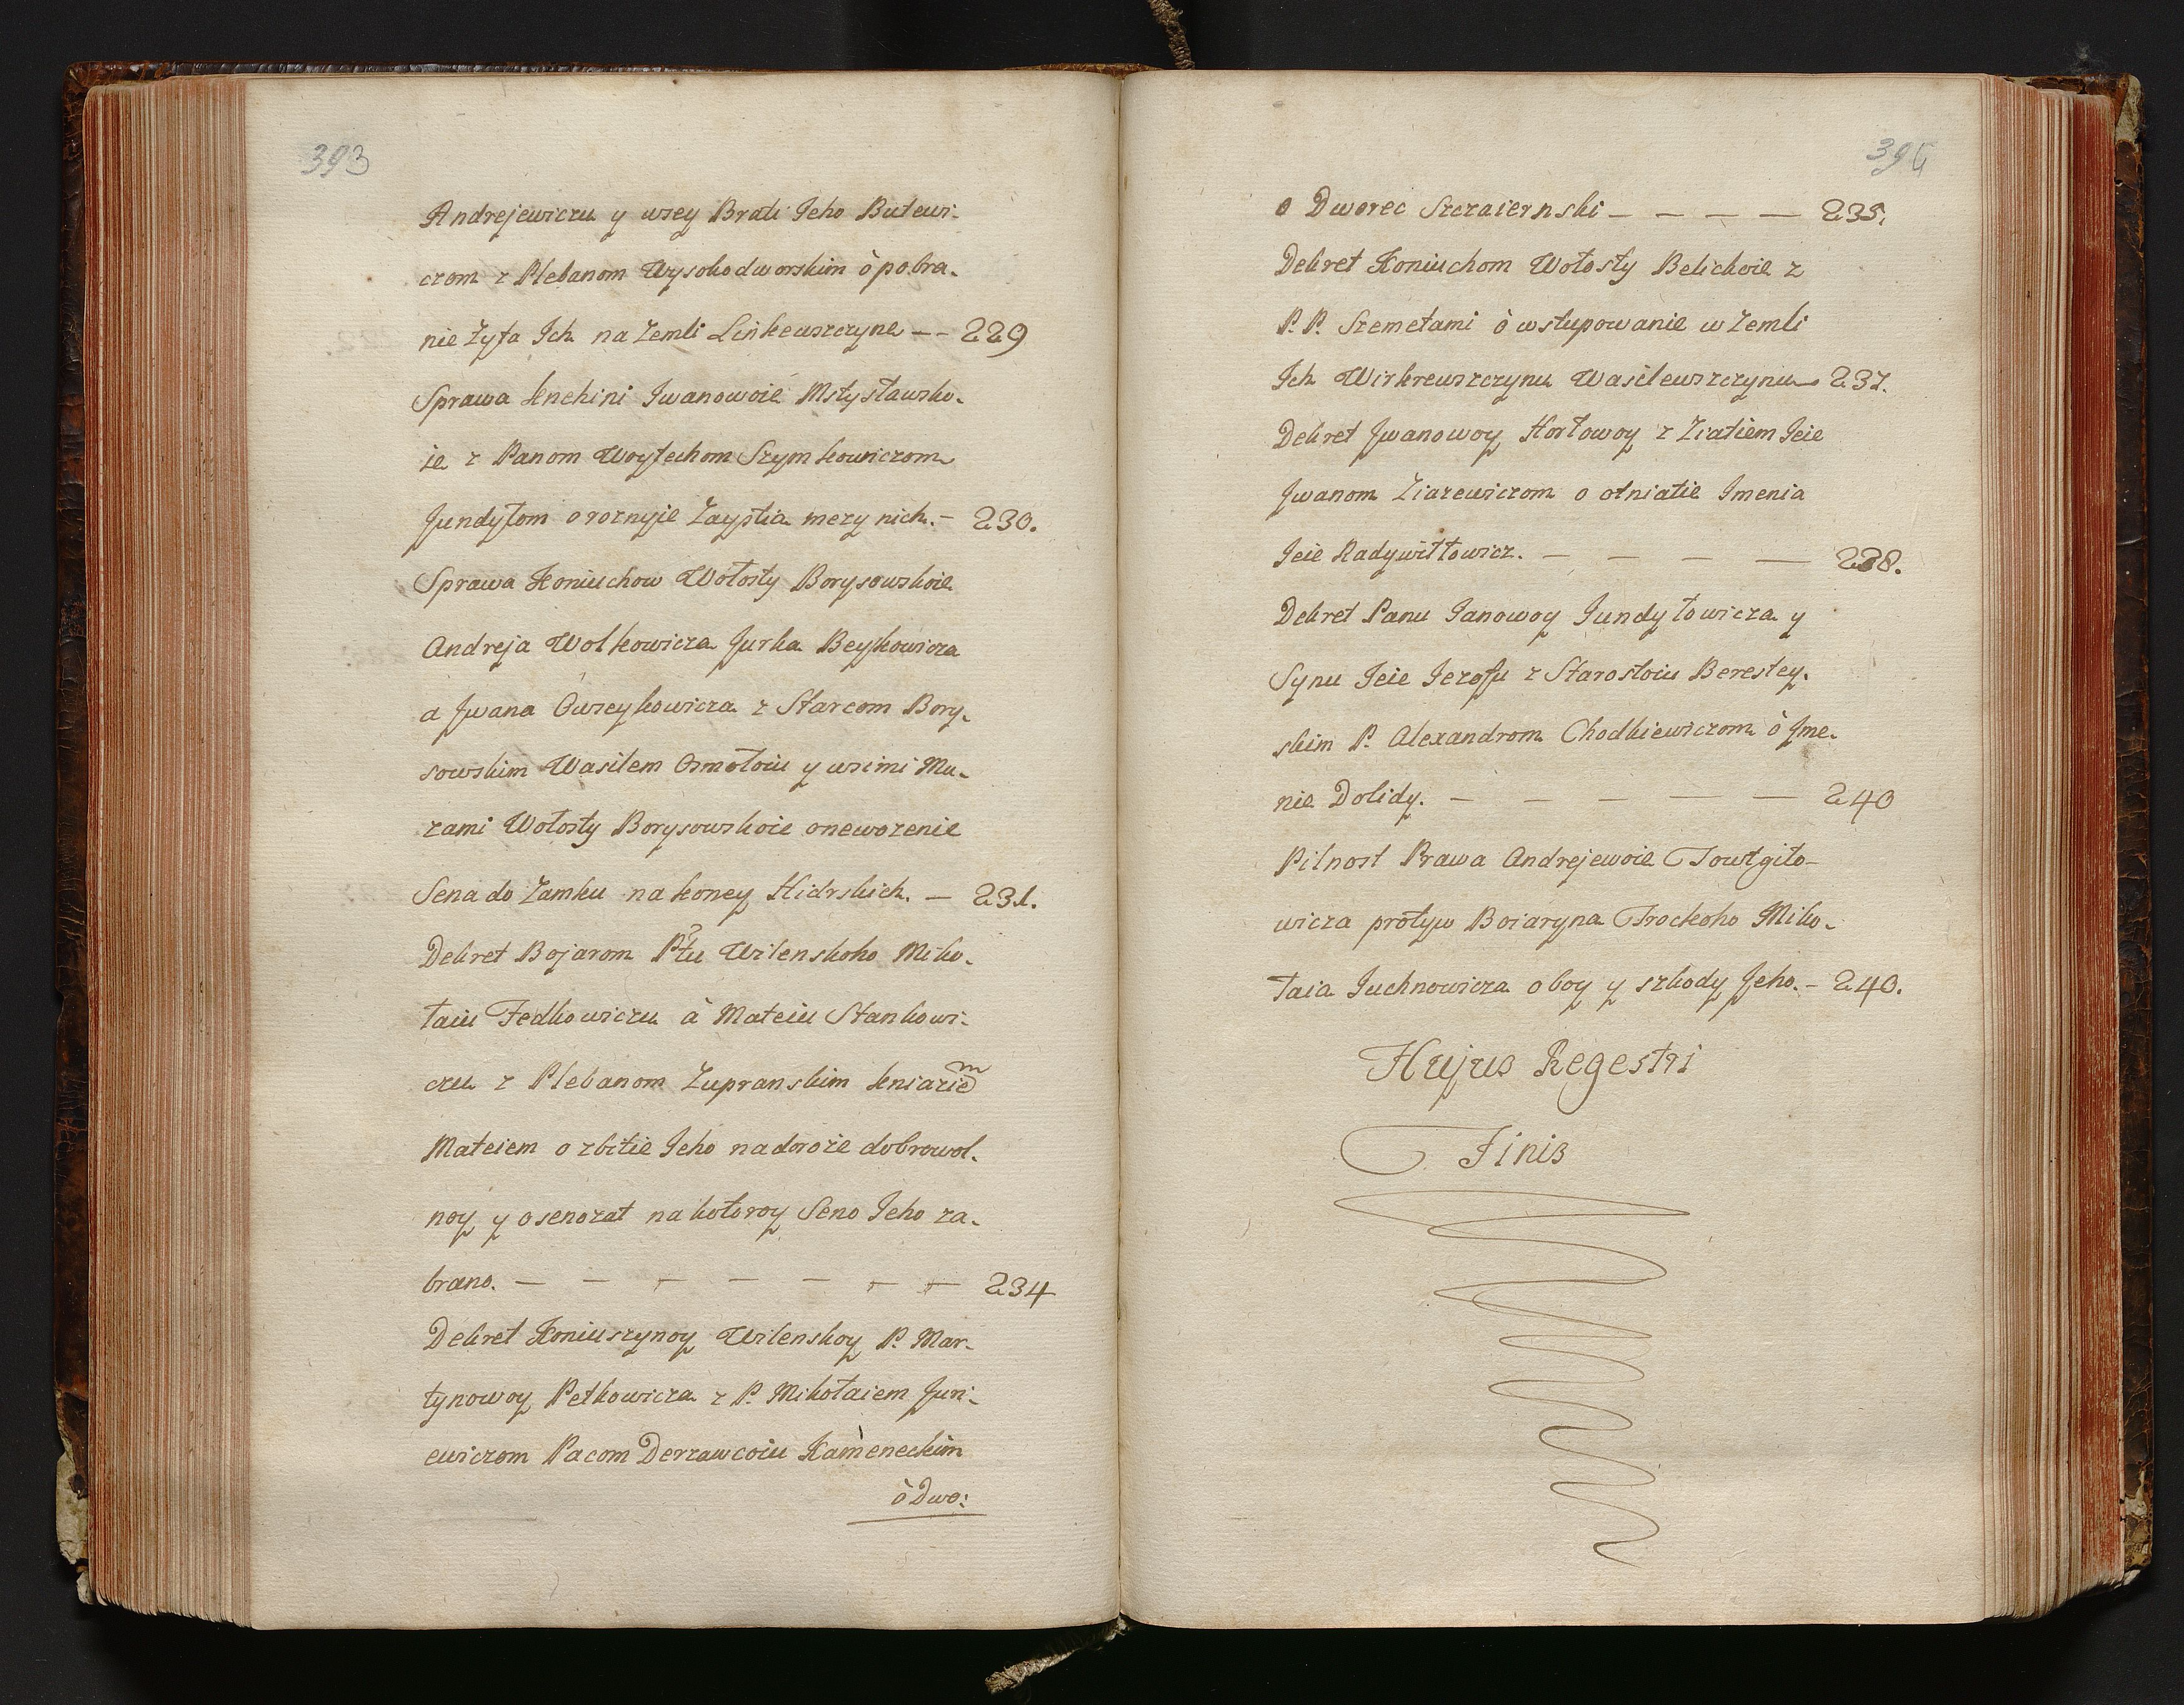 393
Andrejewiczu y wsey Brati Jeho Butewi-
czom z Plebanom Wysokodworskim ò pobra-
nie Zyta Ich na Zemli Linkewszczyne - - 229
Sprawa knehini Iwanowoie Mstysławsko-
ie z Panom Woytechom Szymkowiczom
Jundyłom o roznyie Zaystia mezy nich. - 230.
Sprawa Koniuchow Wołosty Borysowskoie
Andreja Wolkowicza Jurka Beykowicza
a Jwana Owseykowicza z Starcom Bory-
sowskim Wasilem Osmołoiu y wsimi Mu-
zami Wołosty Borysowskoie onewozenie
Sena do Zamku na koney Hidrskich. - 231.
Dekret Bojarom Ptu Wilenskoho Miko-
łaiu Fedkowiczu à Mateiu Stankowi-
czu z Plebanom Zupranskim kniaziem
Mateiem o zbitie Jeho nadoroże dobrowol-
noy y osenozat na kotoroy Seno Jeho za-
brano. - - - - - - - 234
Dekret Koniuszynoy Wilenskoy P. Mar-
tynowoy Petkowicza z P. Mikołaiem Juri-
ewiczom Pacom Derzawcoiu Kameneckim
ò Dwo:
394
o Dworec Szczaiernski - - - - 235.
Dekret Koniuchom Wołosty Belickoie z
P. P. Szemetami ò wstupowanie w Zemli
Ich Wirkrewszczynu Wasilewszczynu - 237.
Dekret Jwanowoy Horłowoy z Ziatiem Jeie
Jwanom Ziazewiczom o otniatie Imenia
Jeie Radywiłłowicz. - - - - 238.
Dekret Panu Janowoy Jundyłowicza y
Synu Jeie Jezofu z Starostoiu Berestey-
skim P. Alexandrom Chodkiewiczom ò Jme-
nie Dolidy. - - - - - 240
Pilnost Prawa Andrejewoie Towtgiło-
wicza protyw Boiaryna Trockoho Miko-
łaia Juchnowicza o boy y szkody Jeho. - 240.
Hujus Regestri
Finis